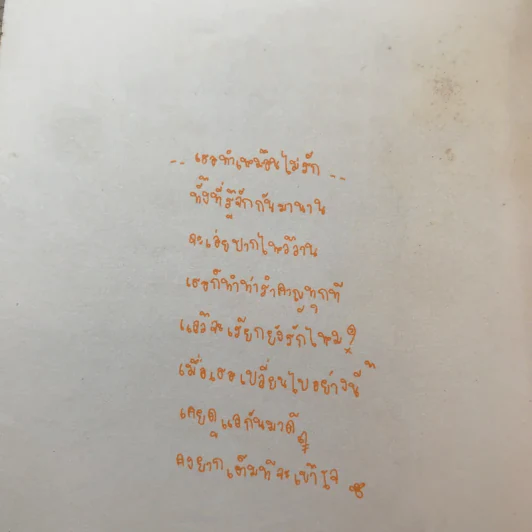 -- เธอทำเหมือนไม่รัก --
ทั้งที่รู้จักกันมานาน
จะเอ่ยปากไหว้วาน
เธอก็ทำท่ารำคาญทุกที
แล้วจะเรียกยังรักไหม?
เมื่อเธอเปลี่ยนไปอย่างนี้
เคยดูแลกันมาดี ๆ
คงยากเต็มทีจะเข้าใจ